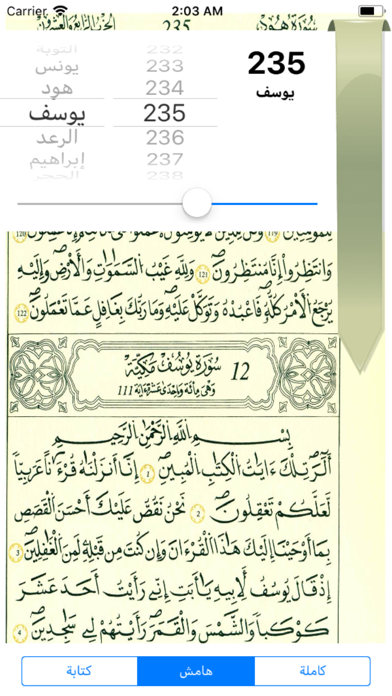 Carrier 2:03 AM
الجزء الرابع والعشرون 235 سورة هود
التوبة 232
يونس 233
هود 234
يوسف 235
الرعد 236
إبراهيم 237
الحجر 238
235
يوسف
وَانتَظِرُوا إِنَّا مُنتَظِرُونَ 121 وَلِلَّهِ غَيْبُ السَّمَوَتِ وَالْأَرْضِ وَإِلَيْهِ
يُرْجَعُ الْأَمْرُ كُلُّهُ فَاعْبُدْهُ وَتَوَكَّلْ عَلَيْهِ وَمَا رَبُّكَ بِغَافِلٍ عَمَّا تَعْمَلُونَ 122
سُورَةُ يُوسُفَ مَكِّيَّة 12
وَهْىَ مِائَة وَاِحْدَى عَشْرَة ايَة 111
بِسْمِ اللَّهِ الرَّحْمَنِ الرَّحِيمِ
الَرَ تِلْكَ ءَايَتُ الْكِتَبِ الْمُبِينِ 1 إِنَّا أَنزَلْنَهُ قُرْءَناً عَرَبِيّاً
لَّعَلَّكُمْ تَعْقِلُونَ 2 نَحْنُ نَقُصُّ عَلَيْكَ أَحْسَنَ الْقَصَصِ
بِمَا أَوْحَيْنَا إِلَيْكَ هَذَا الْقُرْءَانَ وَإِن كُنتَ مِن قَبْلِهِ لَمِنَ الْغَفِلِينَ 3
إِذْ قَالَ يُوسُفُ لِأَبِيهِ يَأَبَتِ إِنِّي رَأَيْتُ أَحَدَ عَشَرَ
كَوْكَباً وَالشَّمْسَ وَالْقَمَرَ رَأَيْتُهُمْ لِي سَجِدِينَ 4
كاملة هامش كتابة